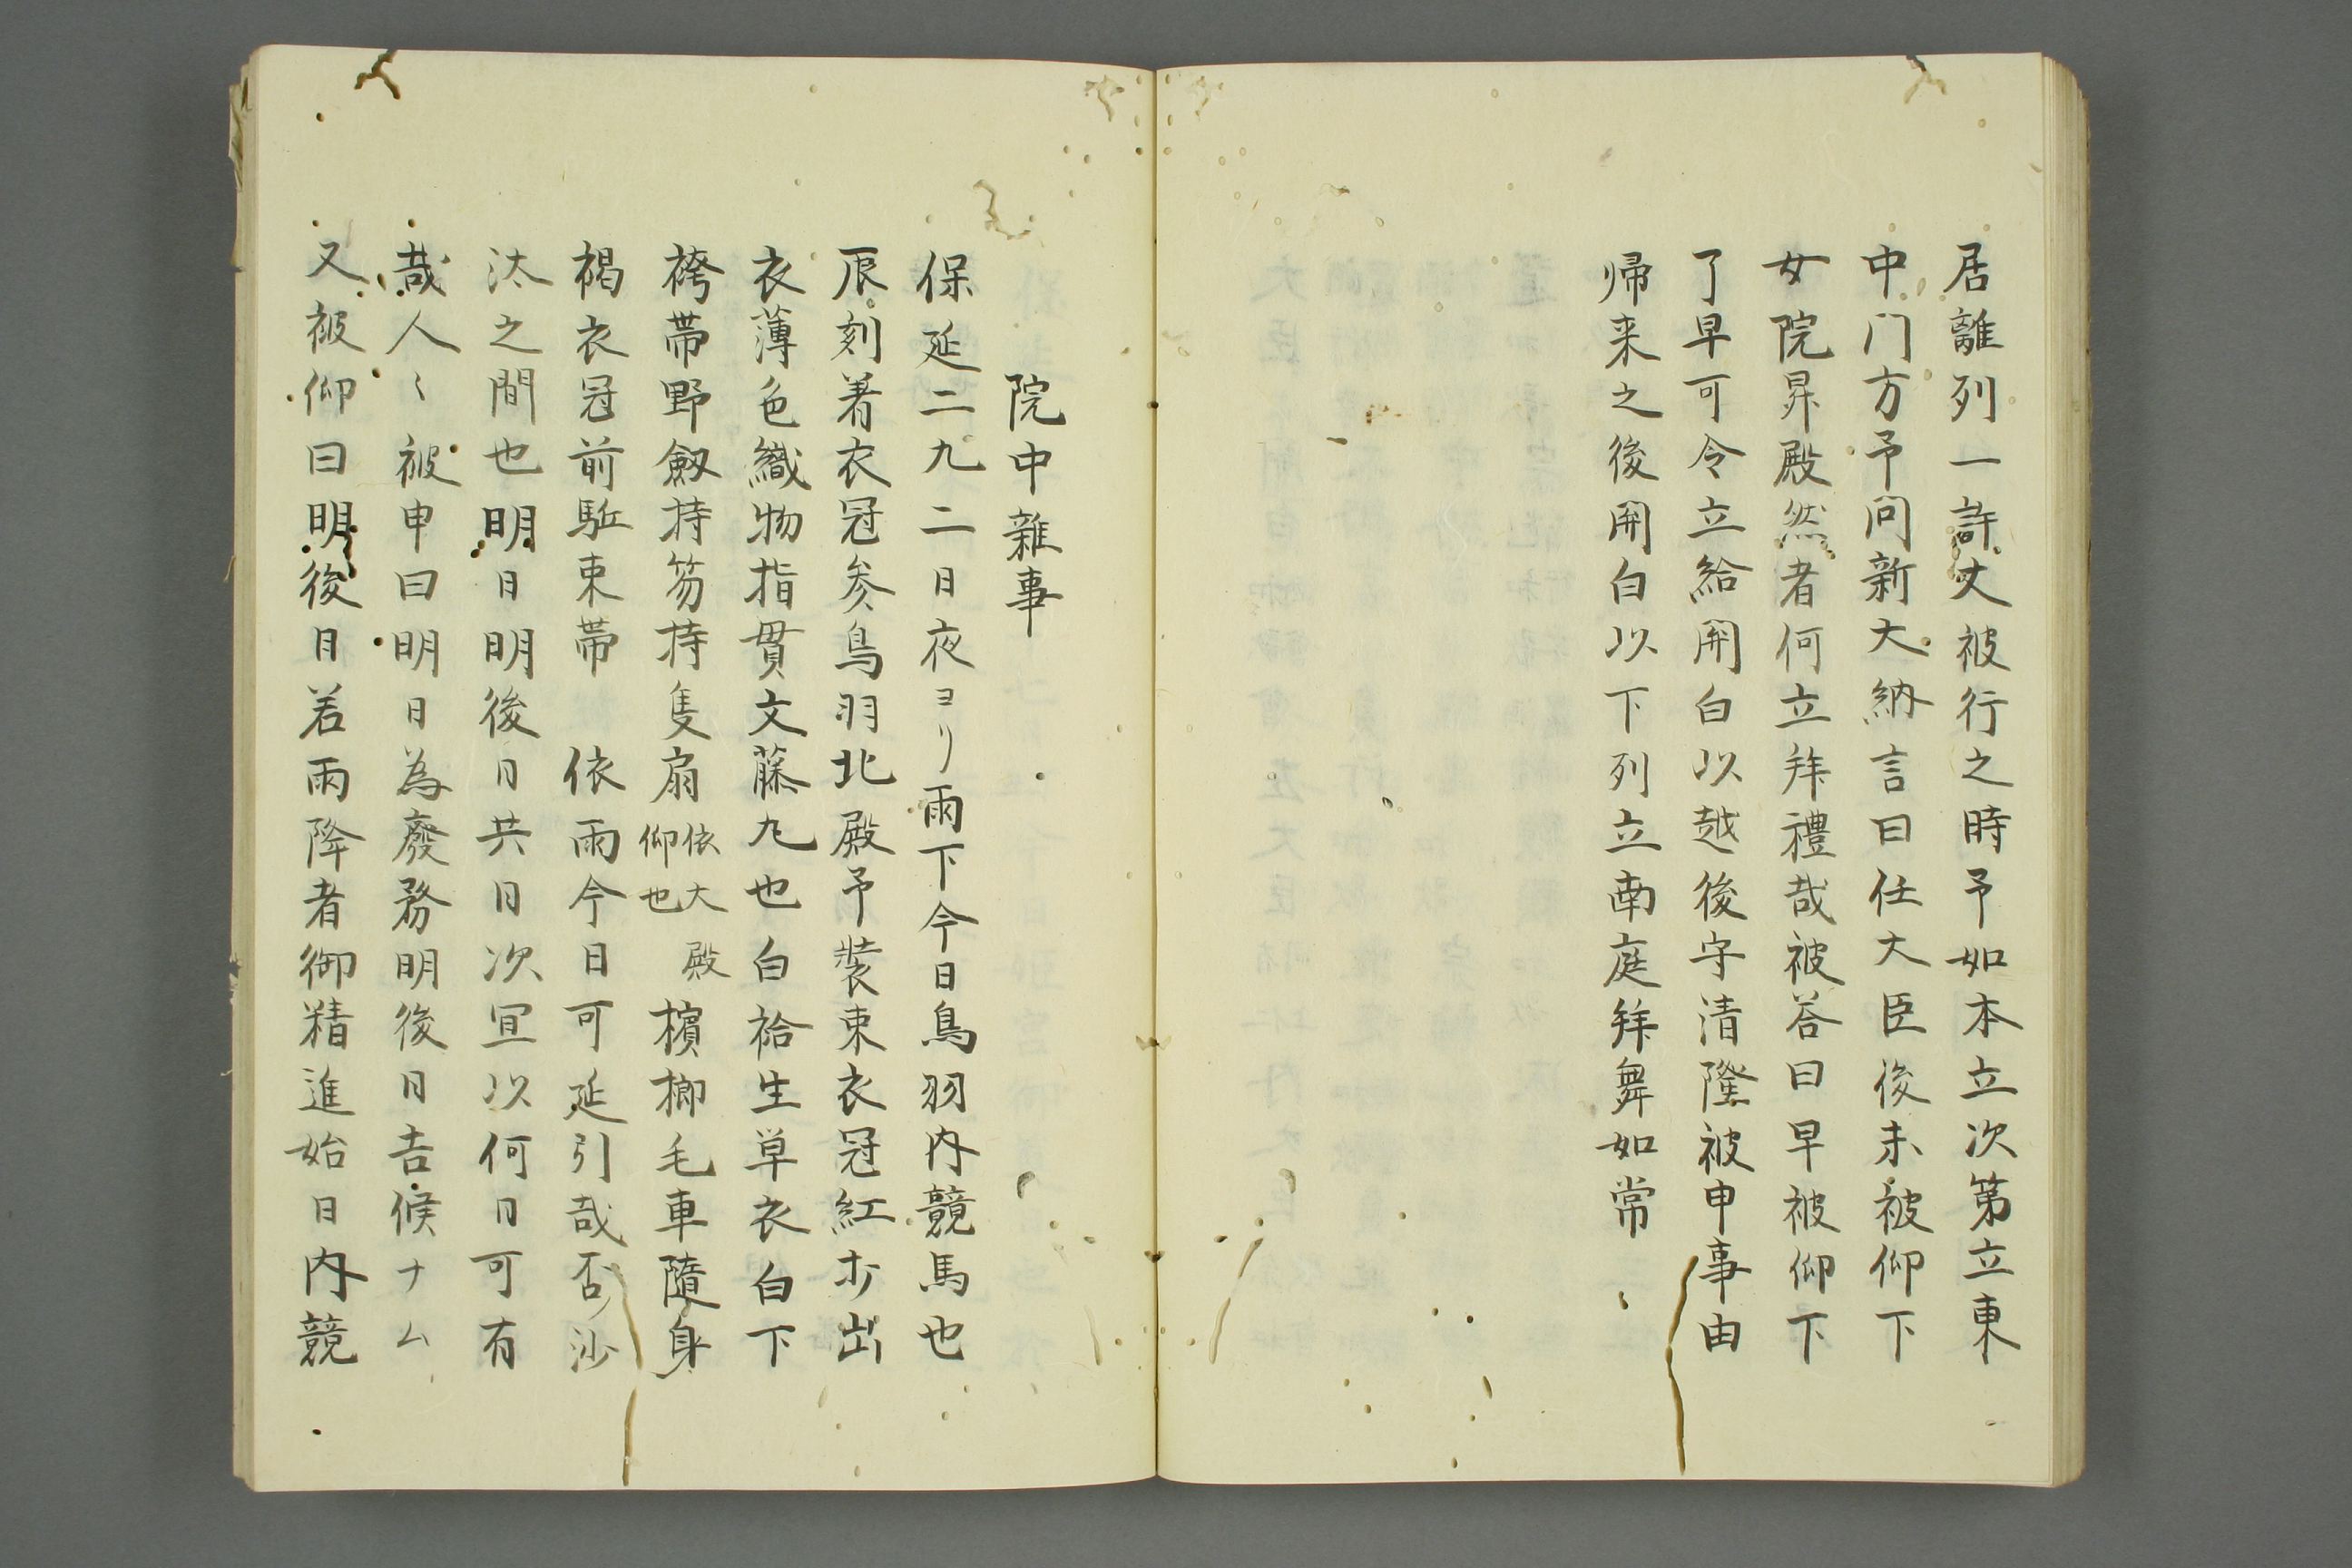 居離列一許丈被行之時予如本立次第立東
中门方予问新大納言曰任大臣後未被仰下
女院昇殿然者何立拜禮哉被荅曰早被仰下
了早可令立給関白以越後守清隆被申事由
帰来之後関白以下列立南庭拜舞如常
院中雜事
保延二九二日夜ヨリ雨下今日鳥羽内競馬也
辰刻着衣冠参鳥羽北殿予裝束衣冠紅打出
衣薄色織物指貫文藤丸也白袷生単衣白下
袴帯野劔持笏持隻扇依大殿仰也檳榔毛車随身
褐衣冠前駈束帯　依雨今日可延引哉否沙
汰之間也明日明後日共日次宜以何日可有
哉人〻被申曰明日為廢務明後日吉候ナム
又被仰曰明後日若雨降者御精進始日内競